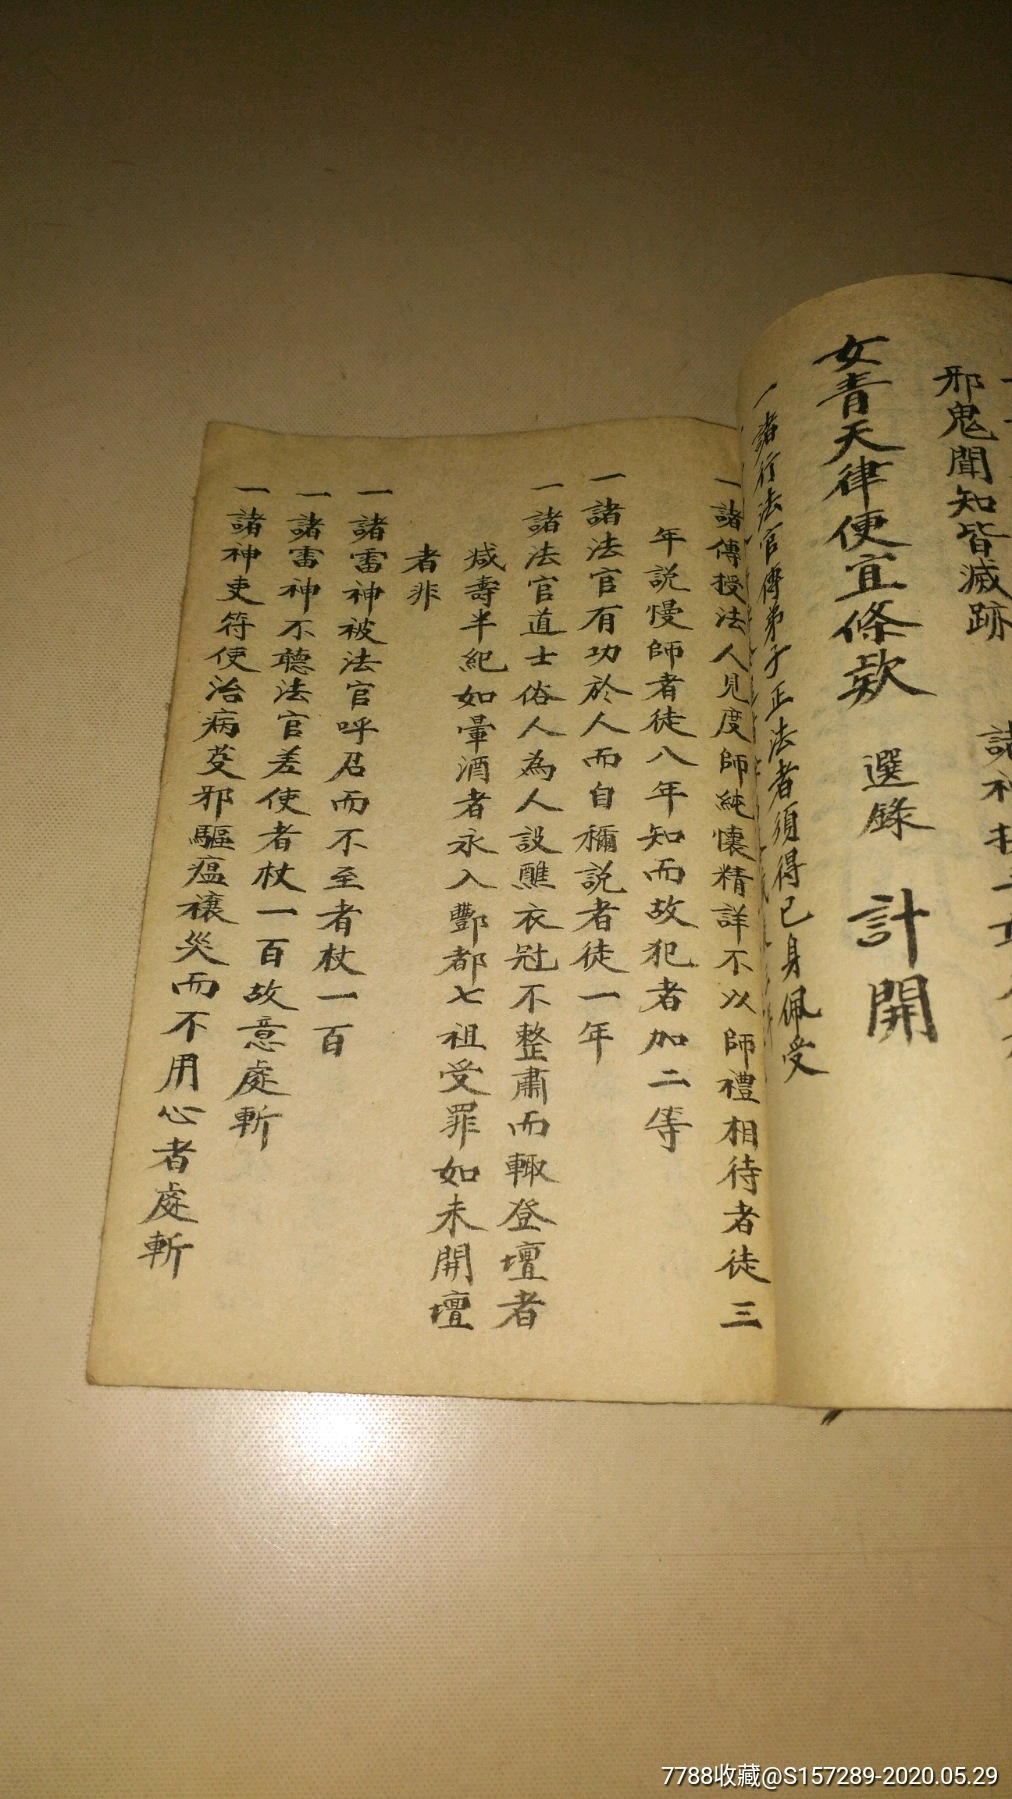 邪鬼聞知皆滅跡
女青天律便宜條款 選錄 計開
一諸行法官傳弟子正法者須得已身佩受
一諸傳授法人見度師純懷精詳不以師禮相待者徒三
年説慢師者徒八年知而故犯者加二等
一諸法官有功於人而自穪説者徒一年
一諸法官道士俗人為人設醮衣冠不整肅而輙登壇者
减壽半紀如暈酒者永入酆都七祖受罪如未開壇
者非
一諸雷神被法官呼召而不至者杖一百
一諸雷神不聽法官差使者杖一百故意處斬
一諸神吏符使治病芟邪驅瘟禳災而不用心者處斬
7788收藏@S157289-2020.05.29